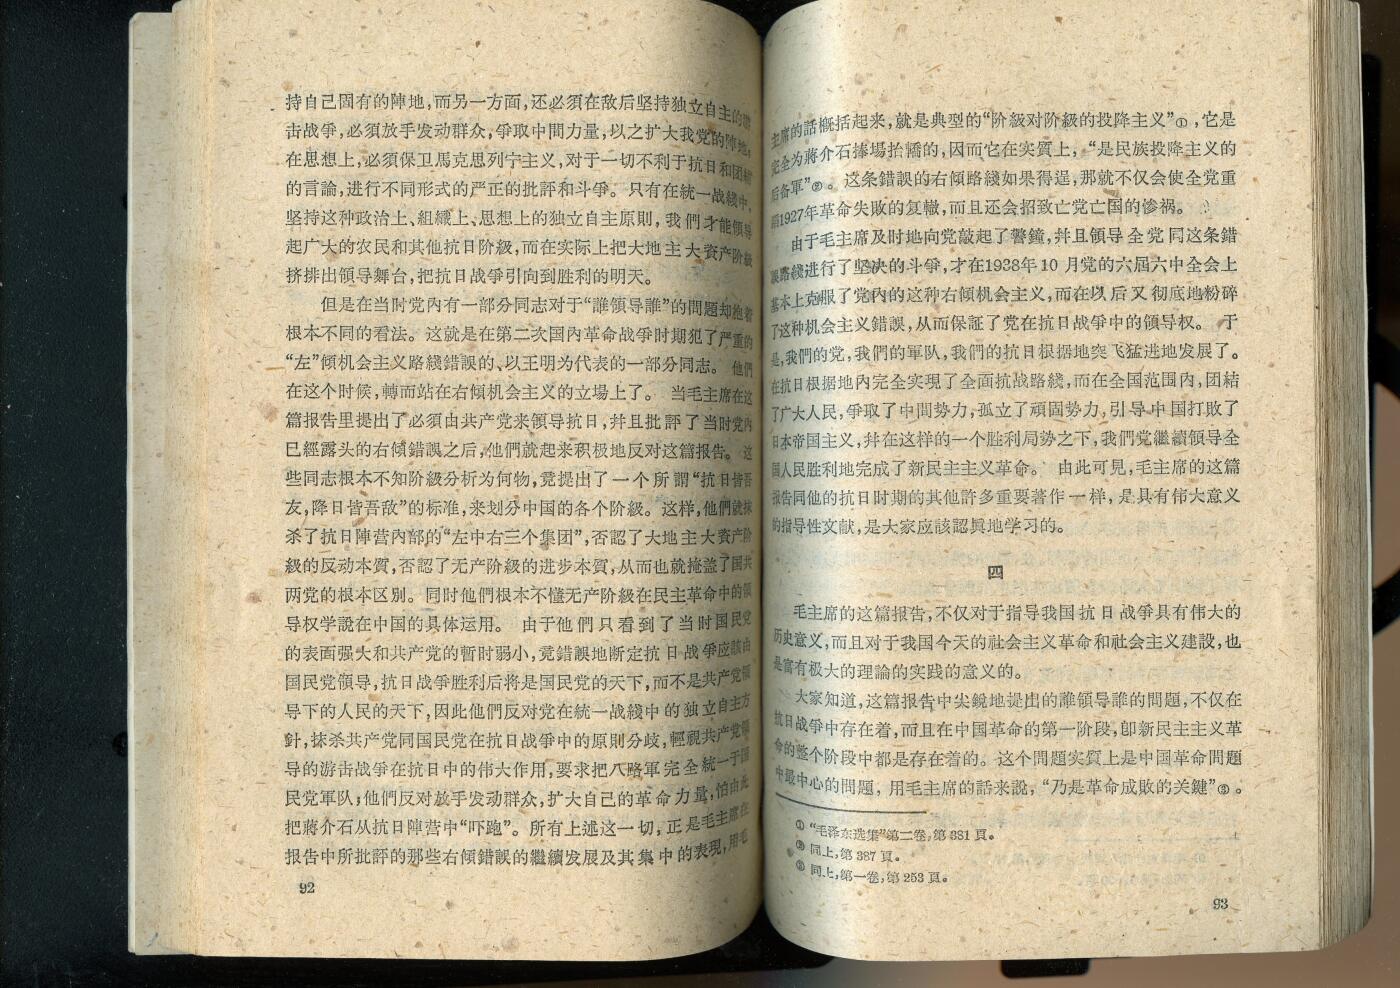 持自己固有的陣地,而另一方面,还必須在敌后坚持独立自主的游
击战爭,必須放手发动群众,爭取中間力量,以之扩大我党的陣地;
在思想上,必須保卫馬克思列宁主义,对于一切不利于抗日和团結
的言論,进行不同形式的严正的批評和斗爭。只有在統一战綫中,
坚持这种政治上、組織上、思想上的独立自主原則,我們才能領导
起广大的农民和其他抗日阶級,而在实际上把大地主大資产阶級
挤排出領导舞台,把抗日战爭引向到胜利的明天。
但是在当时党内有一部分同志对于“誰領导誰”的問題却抱着
根本不同的看法。这就是在第二次国内革命战爭时期犯了严重的
“左”傾机会主义路綫錯誤的、以王明为代表的一部分同志。他們
在这个时候,轉而站在右傾机会主义的立場上了。当毛主席在这
篇报告里提出了必須由共产党来領导抗日,幷且批評了当时党内
已經露头的右傾錯誤之后,他們就起来积极地反对这篇报告。这
些同志根本不知阶級分析为何物,竟提出了一个所謂“抗日皆吾
友,降日皆吾敌”的标准,来划分中国的各个阶級。这样,他們就抹
杀了抗日陣营内部的“左中右三个集团”,否認了大地主大資产阶
級的反动本質,否認了无产阶級的进步本質,从而也就掩盖了国共
两党的根本区別。同时他們根本不懂无产阶級在民主革命中的領
导权学說在中国的具体运用。由于他們只看到了当时国民党
的表面强大和共产党的暫时弱小,竟錯誤地断定抗日战爭应該由
国民党領导,抗日战爭胜利后将是国民党的天下,而不是共产党領
导下的人民的天下,因此他們反对党在統一战綫中的独立自主方
針,抹杀共产党同国民党在抗日战爭中的原則分歧,輕視共产党領
导的游击战爭在抗日中的伟大作用,要求把八路軍完全統一于国
民党軍队;他們反对放手发动群众,扩大自己的革命力量,怕由此
把蔣介石从抗日陣营中“吓跑”。所有上述这一切,正是毛主席在
报告中所批評的那些右傾錯誤的繼續发展及其集中的表現,用毛
92
主席的話概括起来,就是典型的“阶級对阶級的投降主义”①,它是
完全为蔣介石捧場抬轎的,因而它在实質上,“是民族投降主义的
后备軍”②。这条錯誤的右傾路綫如果得逞,那就不仅会使全党重
蹈1927年革命失敗的复轍,而且还会招致亡党亡国的惨祸。
由于毛主席及时地向党敲起了警鐘,幷且領导全党同这条錯
誤路綫进行了坚决的斗爭,才在1938年10月党的六届六中全会上
基本上克服了党内的这种右傾机会主义,而在以后又彻底地粉碎
了这种机会主义錯誤,从而保証了党在抗日战爭中的領导权。于
是,我們的党,我們的軍队,我們的抗日根据地突飞猛进地发展了。
在抗日根据地内完全实現了全面抗战路綫,而在全国范围内,团結
了广大人民,爭取了中間势力,孤立了頑固势力,引导中国打敗了
日本帝国主义,幷在这样的一个胜利局势之下,我們党繼續領导全
国人民胜利地完成了新民主主义革命。由此可見,毛主席的这篇
报告同他的抗日时期的其他許多重要著作一样,是具有伟大意义
的指导性文献,是大家应該認眞地学习的。
四
毛主席的这篇报告,不仅对于指导我国抗日战爭具有伟大的
历史意义,而且对于我国今天的社会主义革命和社会主义建設,也
是富有极大的理論的实践的意义的。
大家知道,这篇报告中尖銳地提出的誰領导誰的問題,不仅在
抗日战爭中存在着,而且在中国革命的第一阶段,卽新民主主义革
命的整个阶段中都是存在着的。这个問題实質上是中国革命間題
中最中心的問題,用毛主席的話来說,“乃是革命成敗的关鍵”③。
① “毛泽东选集”第二卷,第381頁。
② 同上,第387頁。
③ 同上,第一卷,第253頁。
93